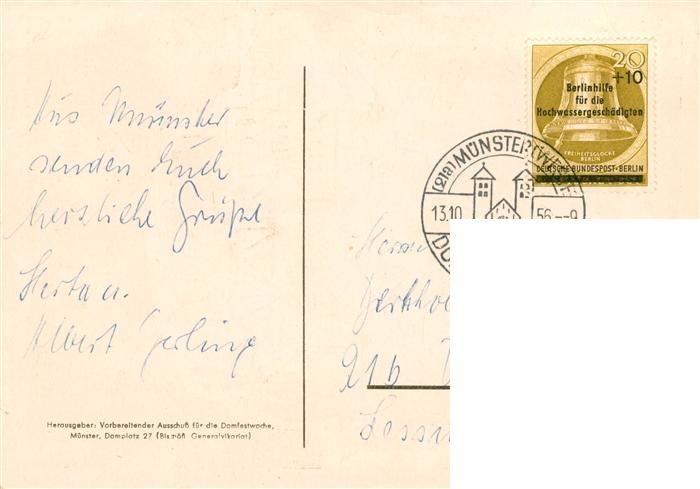 Aus Münster
senden Euch
herzliche Grüße
Herta u.
Albert Gerling
Herausgeber: Vorbereitender Ausschuß für die Domfestwoche,
Münster, Domplatz 27 (Bischöfl. Generalvikariat)
20
+10
Berlinhilfe
für die
Hochwassergeschädigten
FREIHEITSGLOCKE
BERLIN
DEUTSCHE BUNDESPOST · BERLIN
(21a) MÜNSTER (WESTF
13.10
56.--9
21b